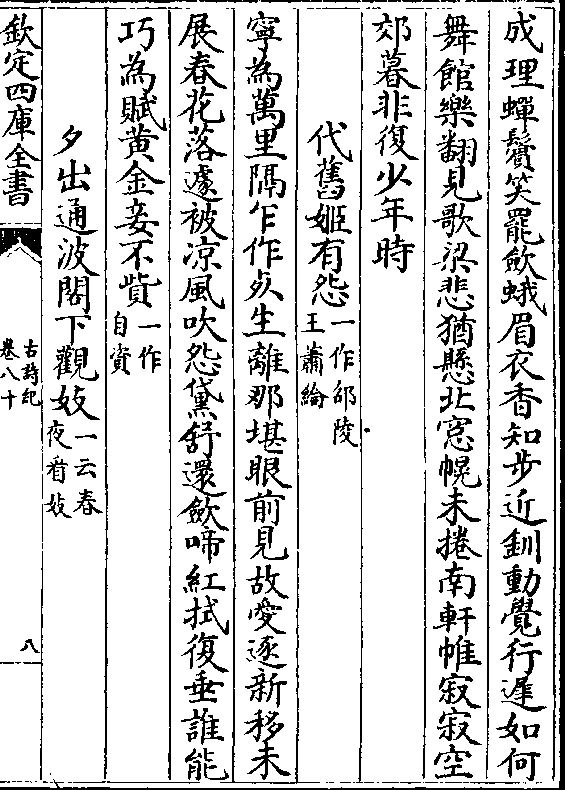 成理蟬鬢笑罷斂蛾眉衣香知步近釧動覺行遲如何
舞館樂翻見歌梁悲猶懸北窓幌未捲南軒帷寂寂空
郊暮非復少年時
代舊姬有怨一作邵陵王蕭綸
寧為萬里隔乍作死生離那堪眼前見故愛逐新移未
展春花落遽被凉風吹怨黛舒還斂啼紅拭復垂誰能
巧為賦黄金妾不貲一作自資
夕出通波閣下觀妓一云春夜看妓
欽定四庫全書
古詩紀卷八十
八